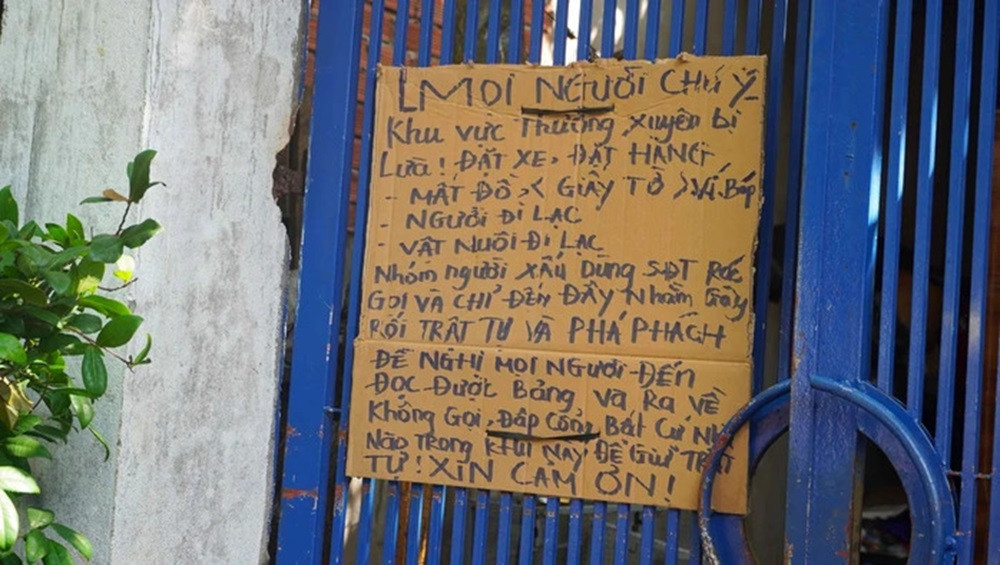 LMỌI NGƯỜI CHÚ Ý
Khu vực Thường xuyên bị
Lừa! ĐẶT XE, ĐẶT HÀNG
- MẤT ĐỒ < GIẤY TỜ > Ví, Bóp
- NGƯỜI ĐI LẠC
- VẬT NUÔI ĐI LẠC
Nhóm người xấu Dùng SĐT Rác
GỌI VÀ CHỈ ĐẾN ĐÂY Nhằm Gây
RỐI TRẬT TỰ VÀ PHÁ PHÁCH
ĐỀ NGHỊ MỌI NGƯỜI ĐẾN
ĐỌC ĐƯỢC Bảng và Ra VỀ
Không Gọi, Đập Cổng Bất Cứ
Nào Trong KHU NÀY ĐỂ GIỮ TRẬT
TỰ! XIN CẢM ƠN!